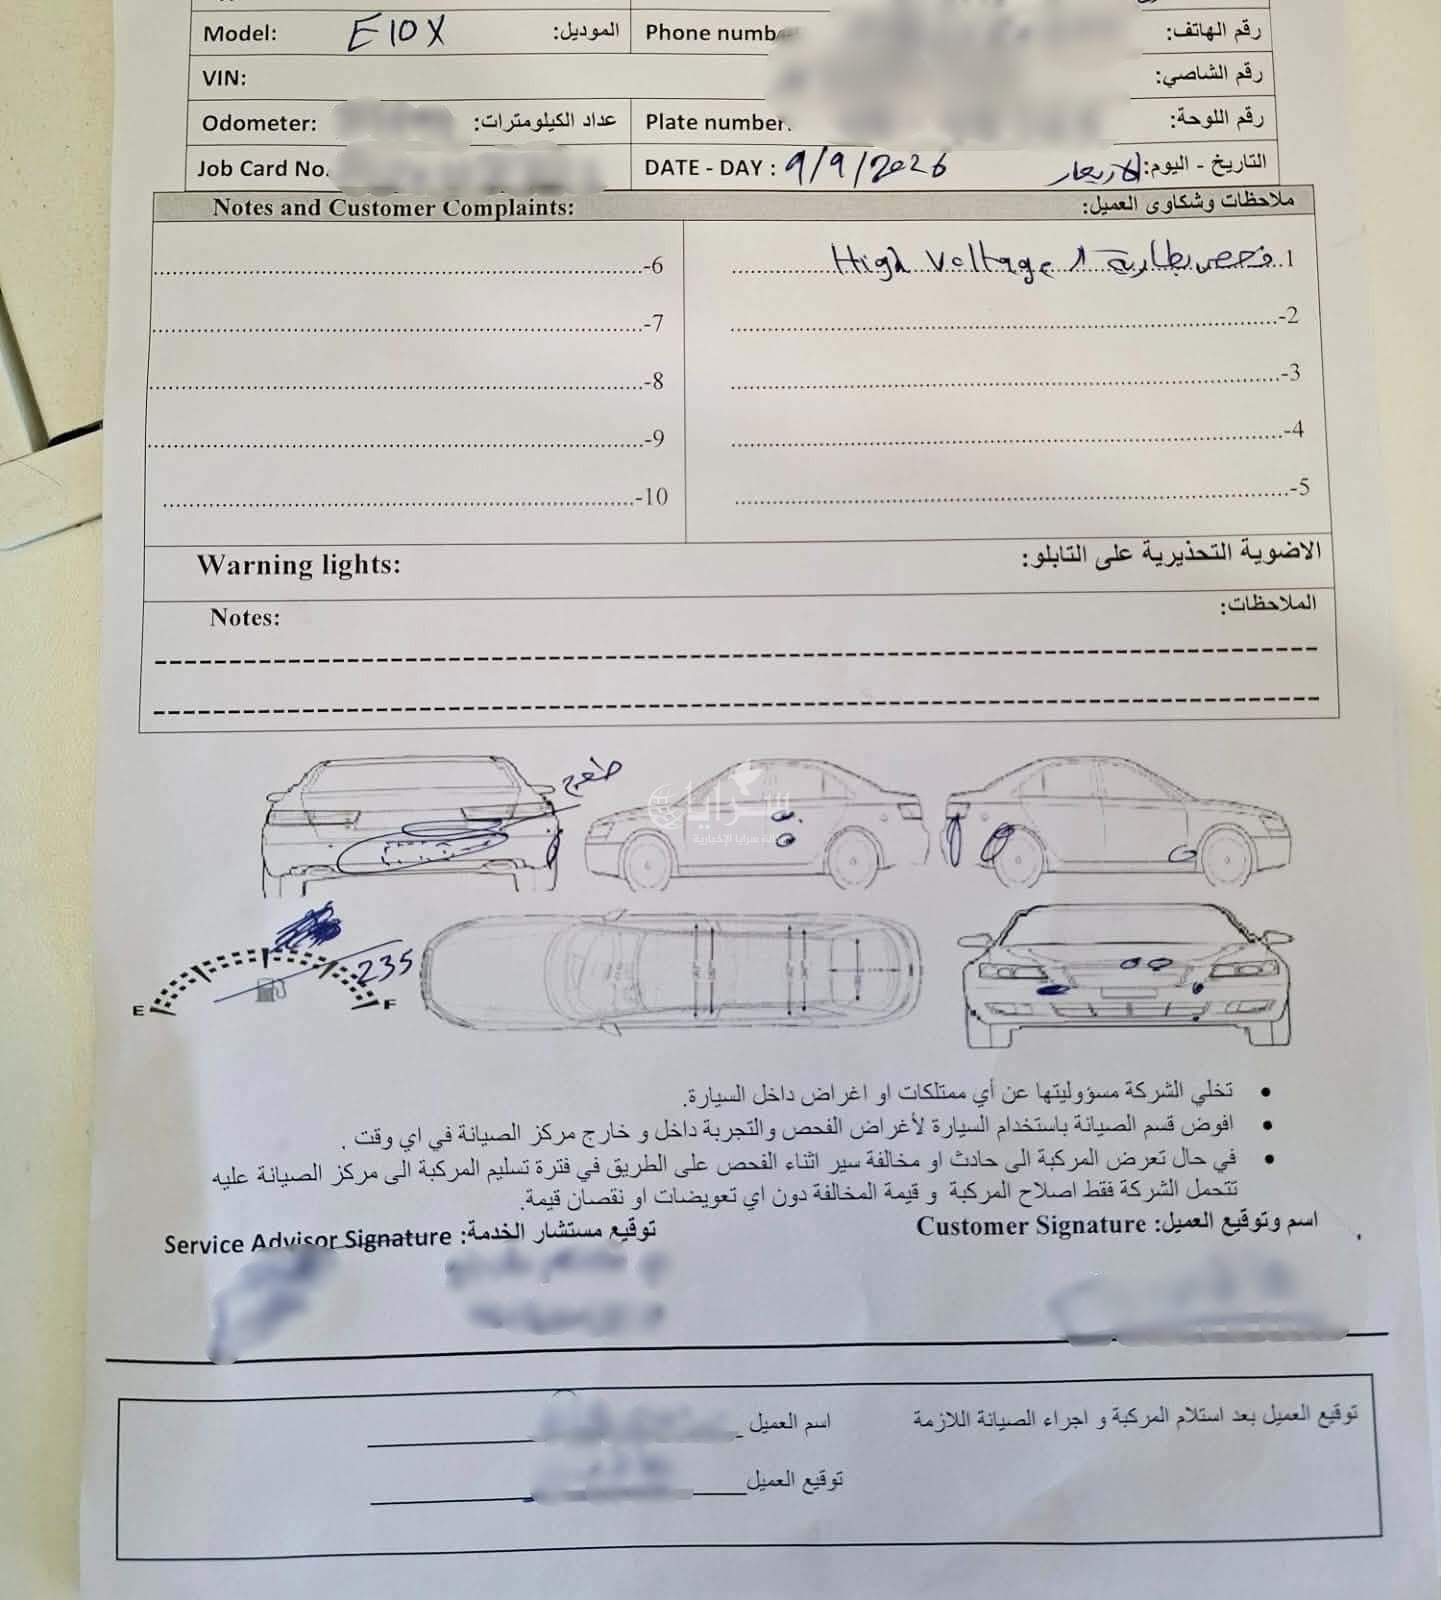 Model: E10X الموديل: Phone numb رقم الهاتف:
VIN: رقم الشاصي:
Odometer: عداد الكيلومترات: Plate number رقم اللوحة:
Job Card No. DATE - DAY : 9/9/2026 التاريخ - اليوم: الاربعاء
Notes and Customer Complaints: ملاحظات وشكاوى العميل:
1. فحص بطارية ال High Voltage
-2
-3
-4
-5
-6
-7
-8
-9
-10
Warning lights: الاضوية التحذيرية على التابلو:
Notes: الملاحظات:
طعج
سرايا
وكالة سرايا الإخبارية
235
E F
• تخلي الشركة مسؤوليتها عن أي ممتلكات او اغراض داخل السيارة.
• افوض قسم الصيانة باستخدام السيارة لأغراض الفحص والتجربة داخل و خارج مركز الصيانة في اي وقت .
• في حال تعرض المركبة الى حادث او مخالفة سير اثناء الفحص على الطريق في فترة تسليم المركبة الى مركز الصيانة عليه
تتحمل الشركة فقط اصلاح المركبة و قيمة المخالفة دون اي تعويضات او نقصان قيمة.
اسم وتوقيع العميل: Customer Signature توقيع مستشار الخدمة: Service Advisor Signature
توقيع العميل بعد استلام المركبة و اجراء الصيانة اللازمة اسم العميل
توقيع العميل